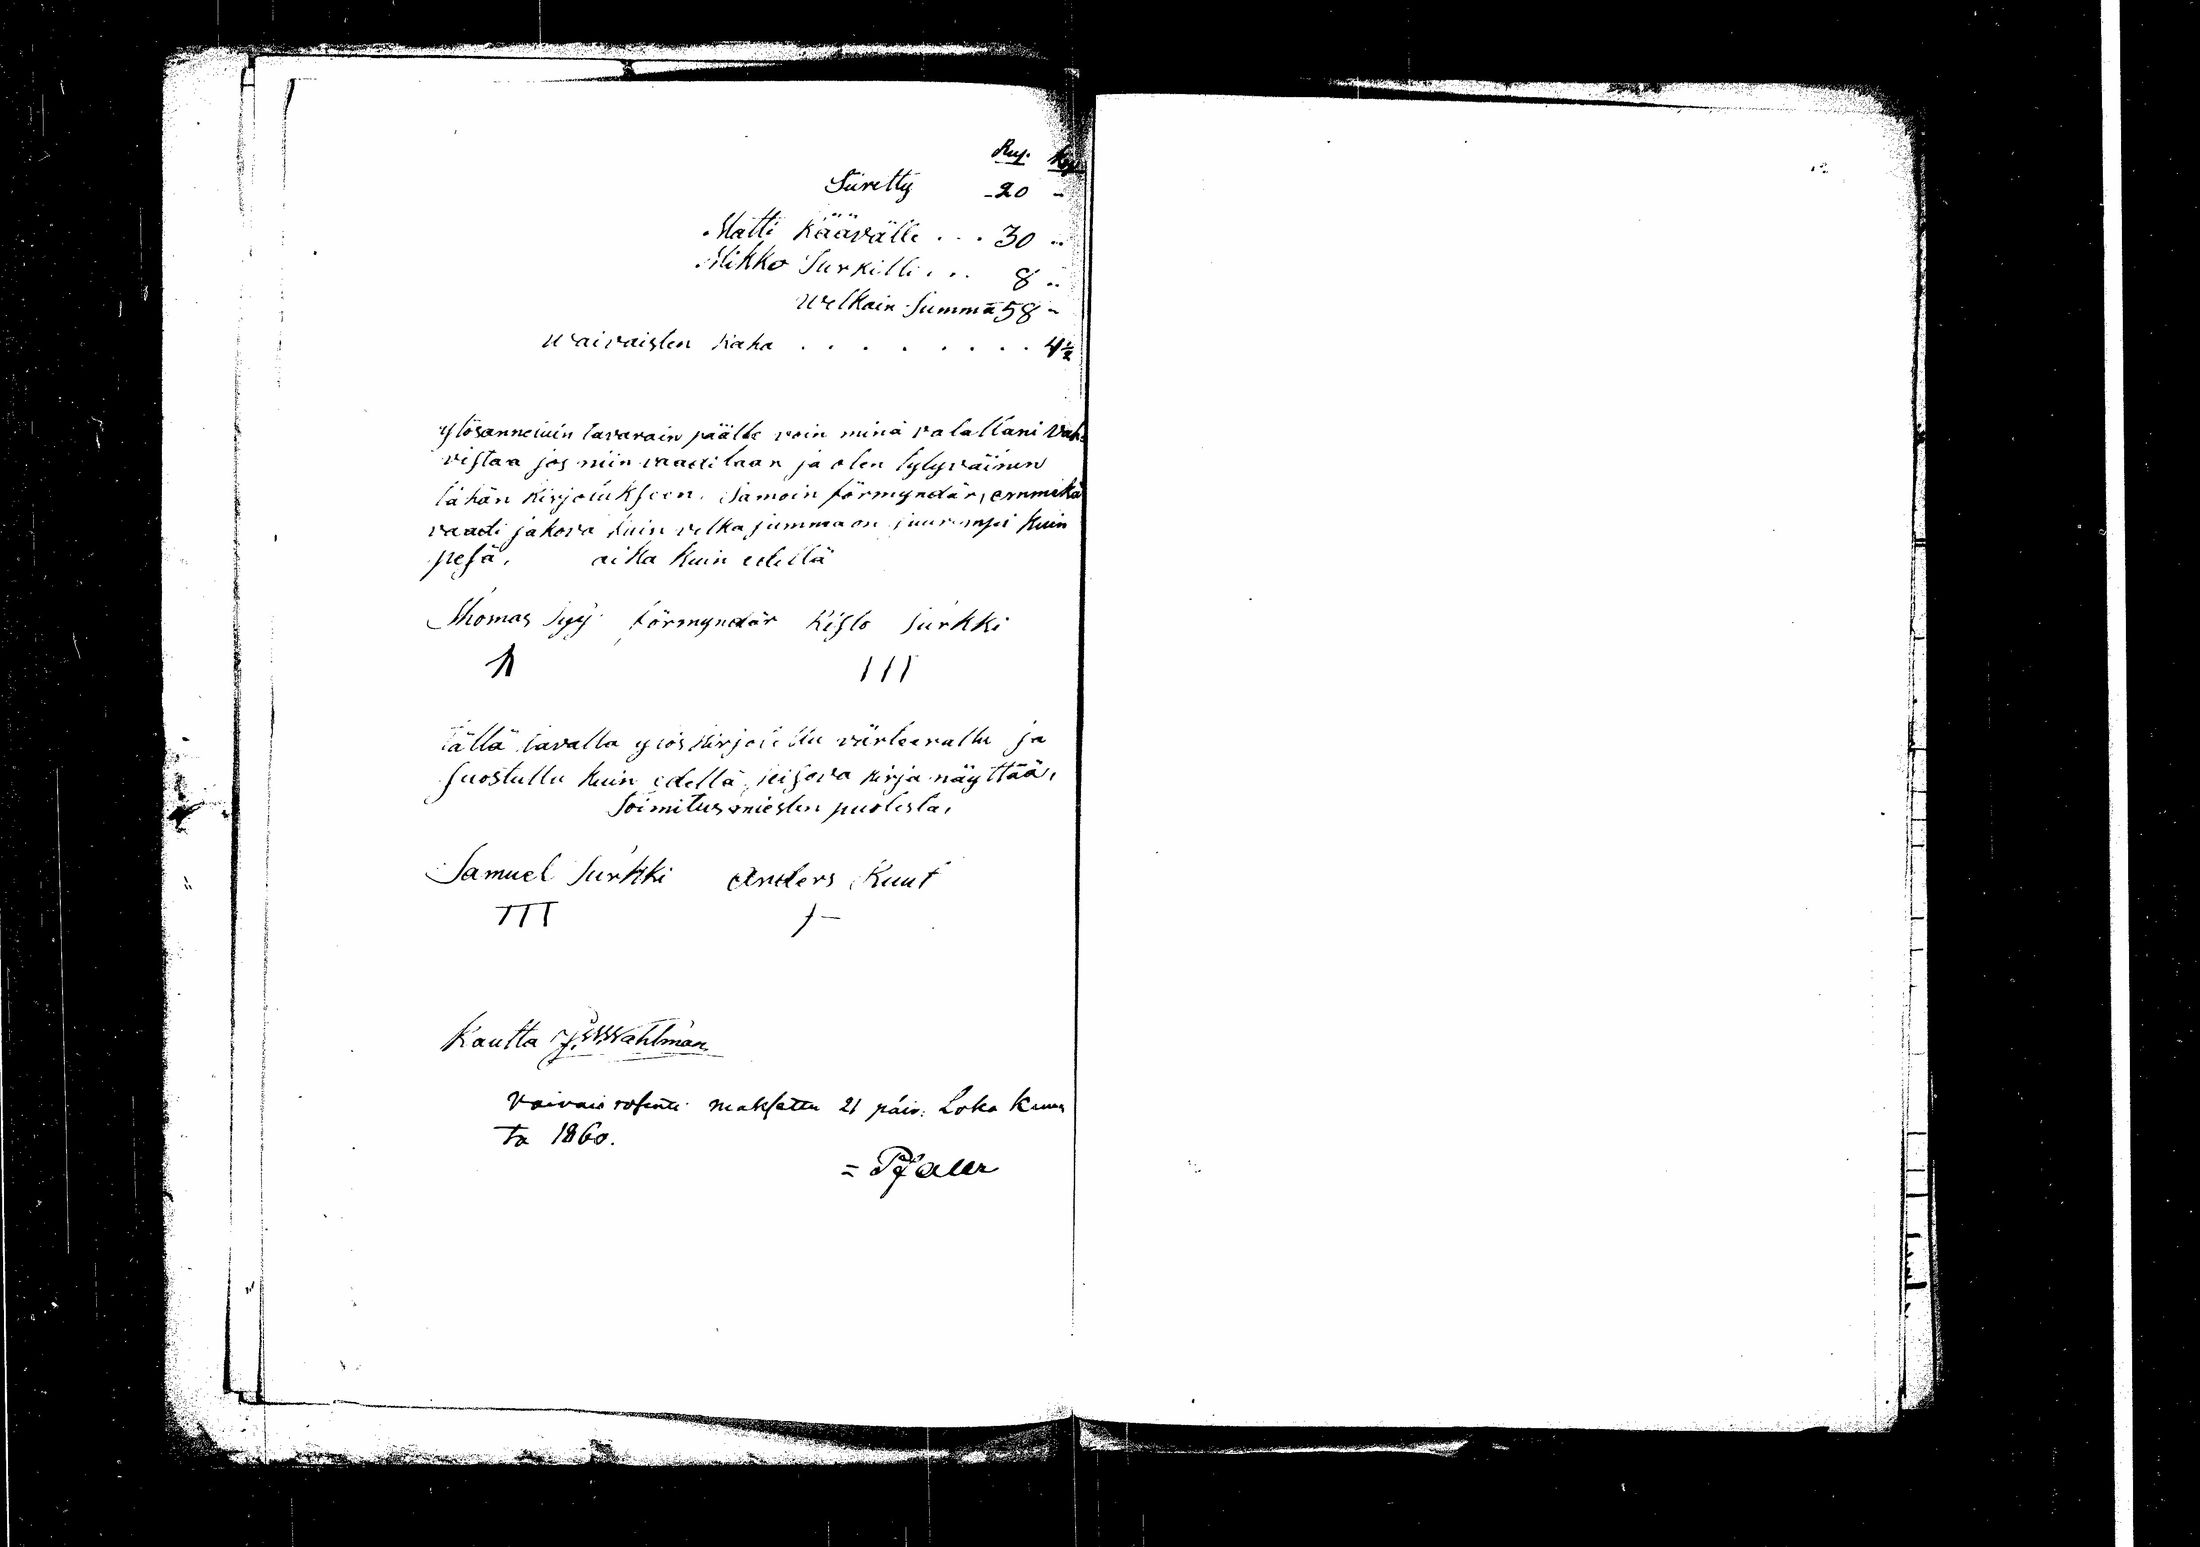 Rup. Kop.
Siiretty 20 "
Matti Käävälle . . . 30 "
Mikko Surkilli . . . 8 "
Welkain Summa 58 "
waivaisten Raha . . . . . . . . 4½
ylösannetuin tavarain päälle voin minä valallani vah-
vistaa jos niin vaaditaan ja olen tytyväinen
tähän kirjotukseen. Samoin förmyndär, emmekä
vaadi jakova kuin velka summa on suurempi kuin
pesä. aika kuin edellä
Thomas Syyj förmyndär Risto Surkki
III
tällä tavalla ylöskirjotettu värteerattu ja
suostuttu kuin edellä seisova kirja näyttää,
Toimitusmiesten puolesta,
Samuel Surkki Anders Kuut
Kautta J. W. Wahlman.
Vaivais rosentti maksettu 21 päiv. Loka kuus
ta 1860.
= Pfaler